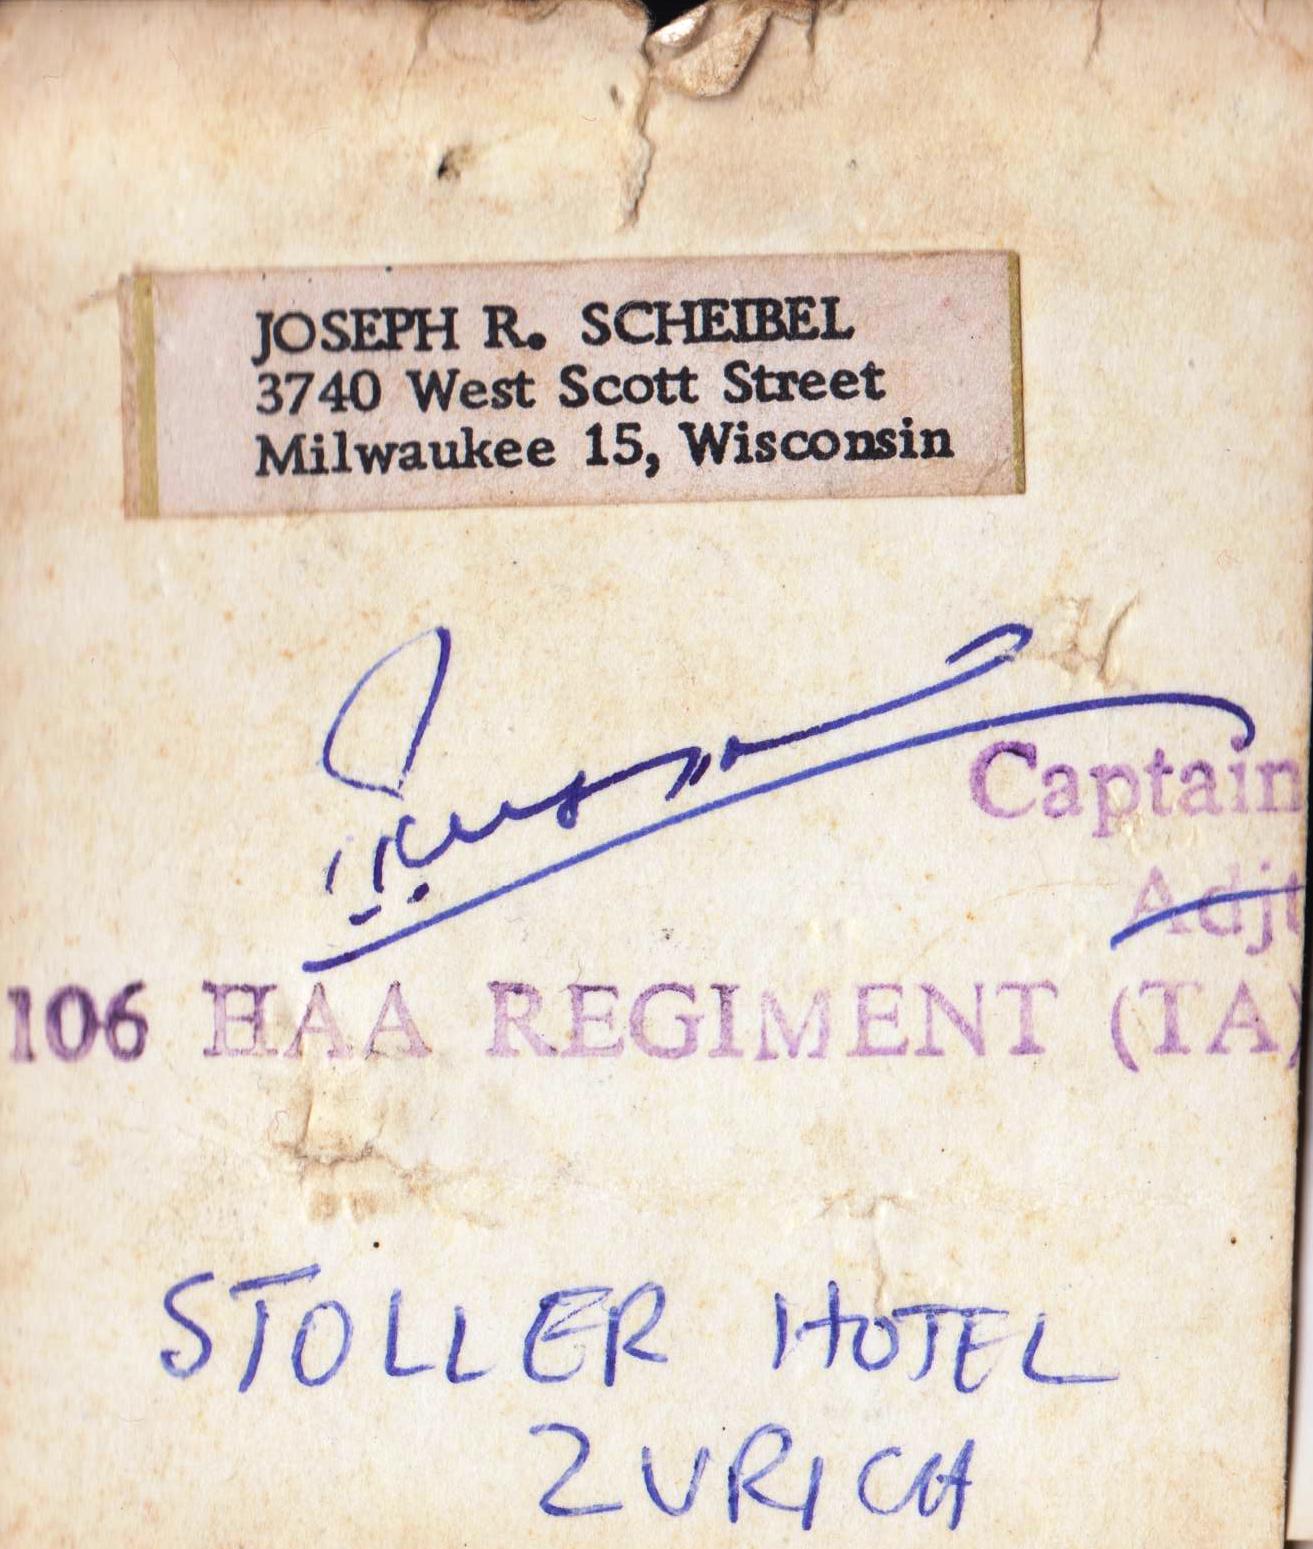 JOSEPH R. SCHEIBEL
3740 West Scott Street
Milwaukee 15, Wisconsin
Captain
Adjt
106 HAA REGIMENT (TA)
STOLLER HOTEL
ZURICH